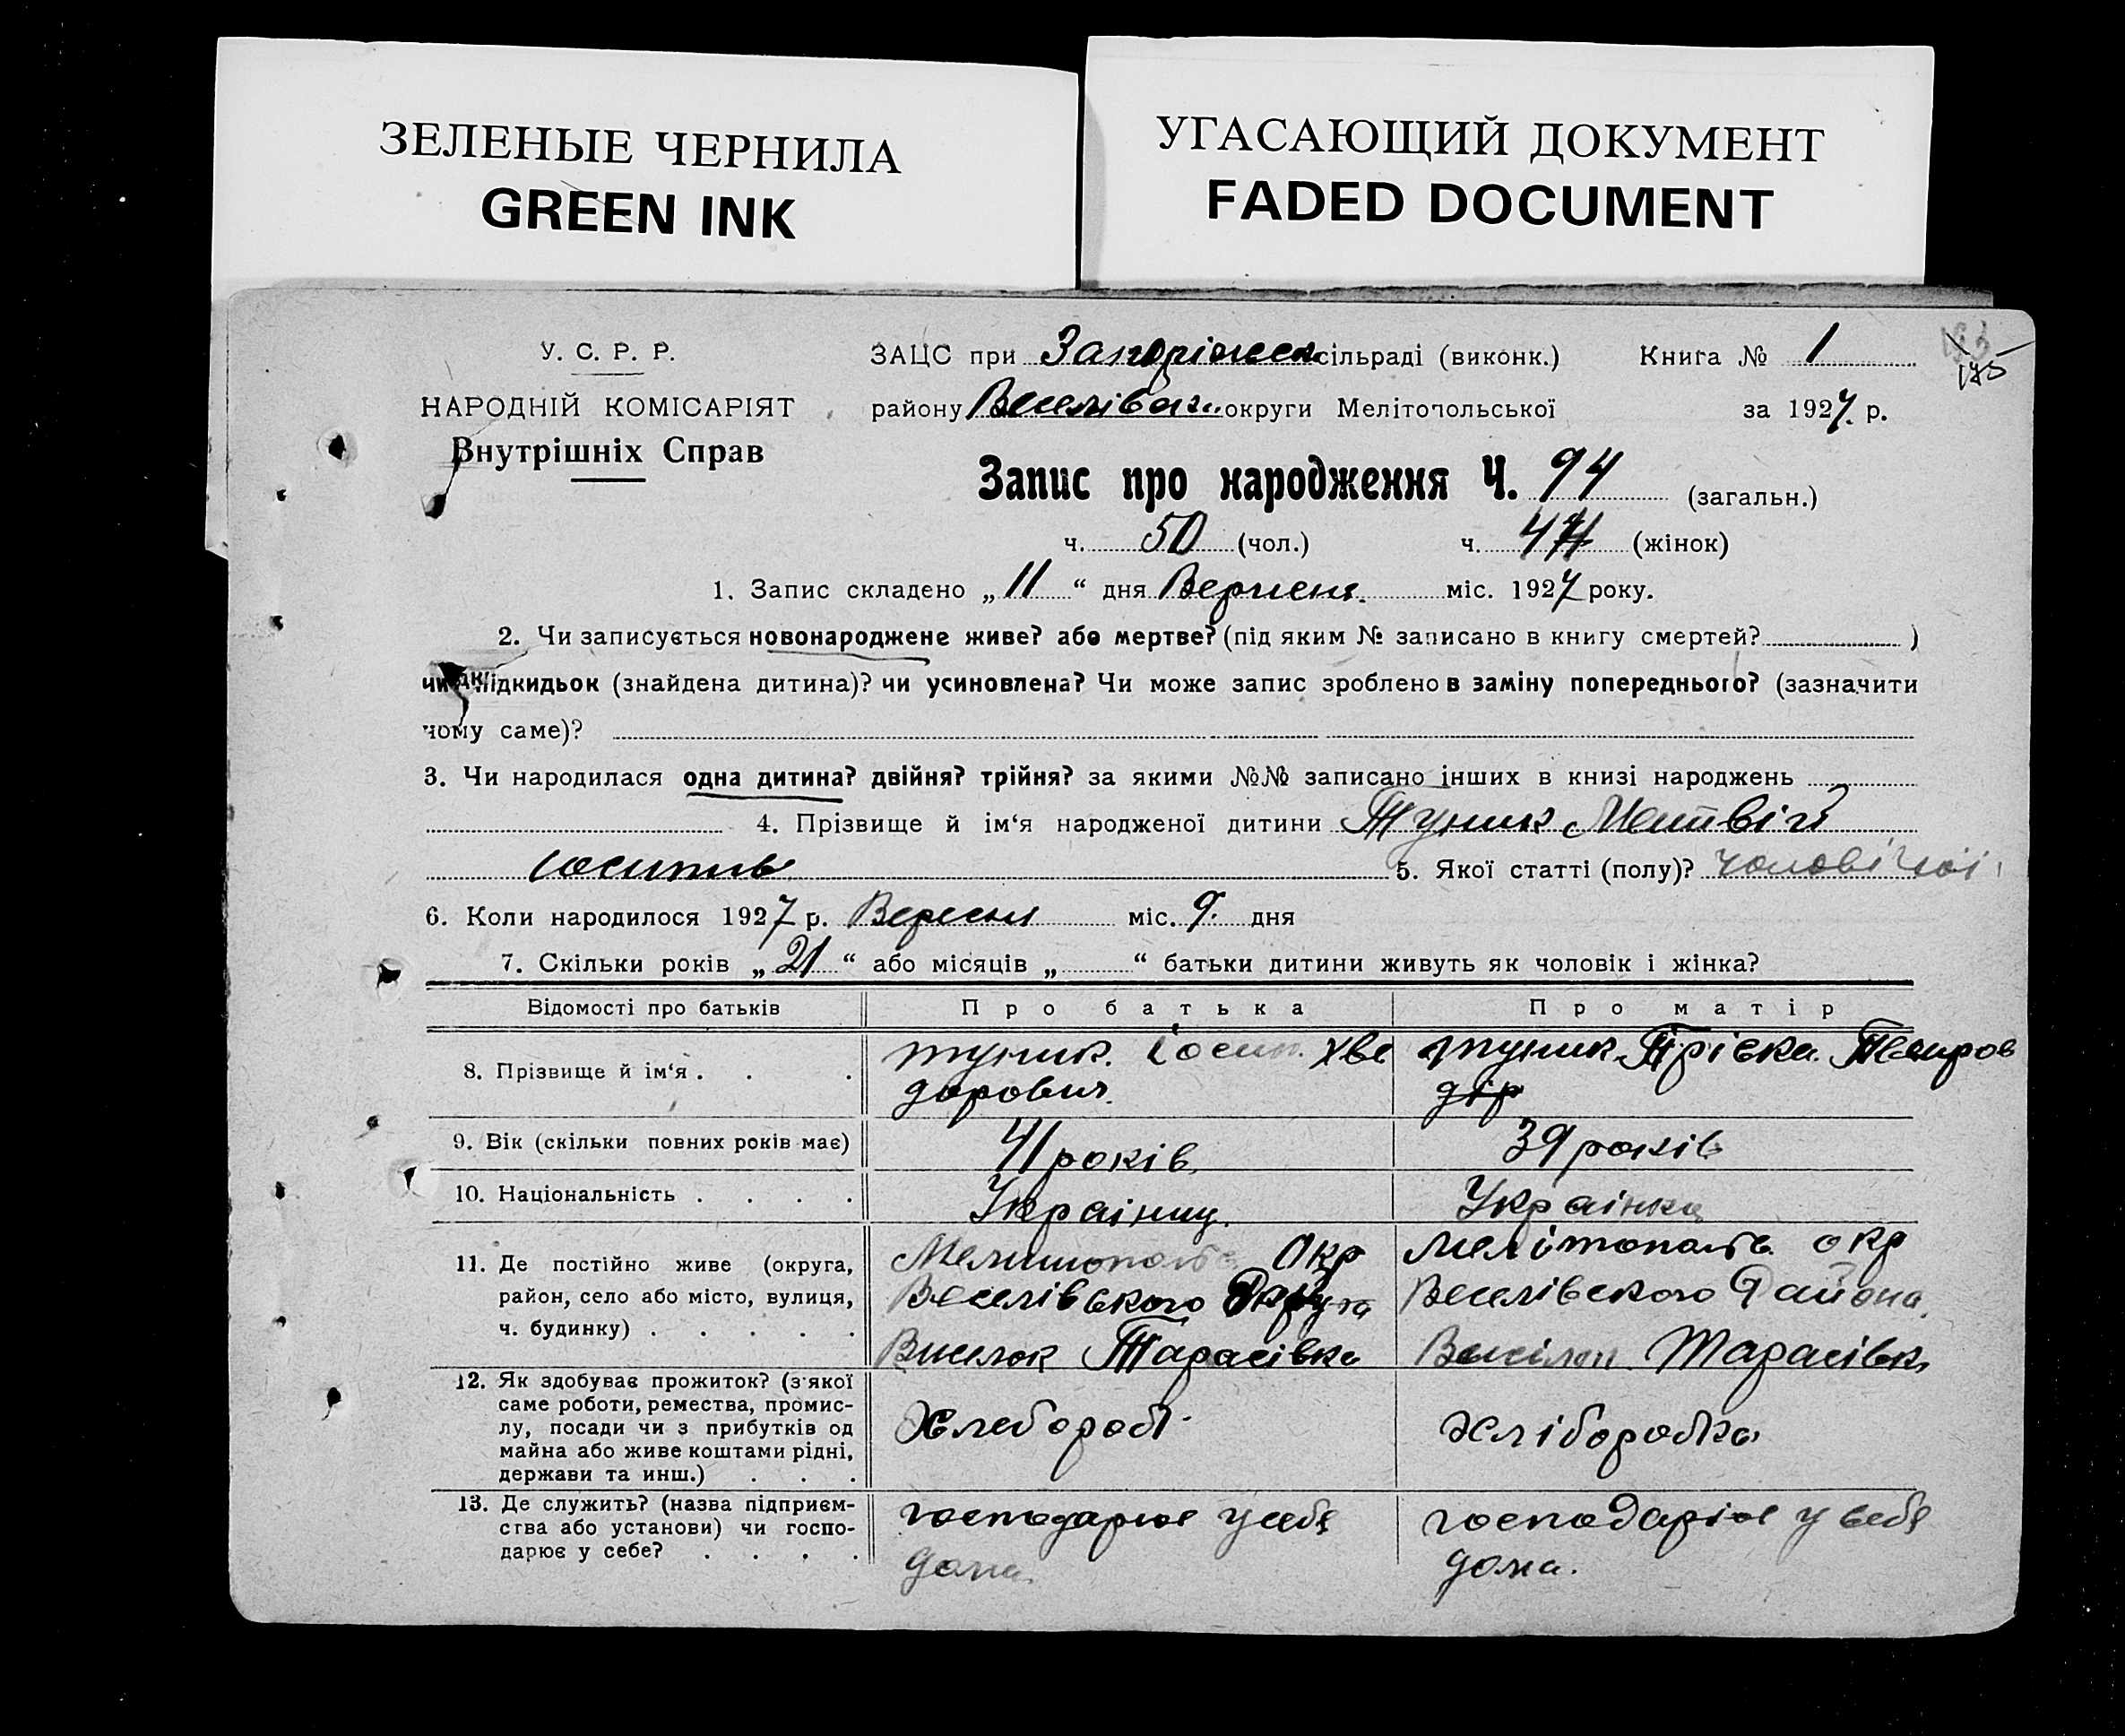 ЗЕЛЕНЫЕ ЧЕРНИЛА
GREEN INK
УГАСАЮЩИЙ ДОКУМЕНТ
FADED DOCUMENT
У. С. Р. Р.
НАРОДНІЙ КОМІСАРІЯТ
Внутрішніх Справ
ЗАЦС при Запоріжск сільраді (виконк.) Книга № 1
175
району Веселівськ. округи Мелітопольської за 1927. р.
Запис про народження Ч. 94 (загальн.)
ч. 50 (чол.) ч. 44 (жінок)
1. Запис складено „ 11 “ дня Верисня. міс. 1927 року.
2. Чи записується новонароджене живе? або мертве? (під яким № записано в книгу смертей? )
чи підкидьок (знайдена дитина)? чи усиновлена? Чи може запис зроблено в заміну попереднього? (зазначити
чому саме)?
3. Чи народилася одна дитина? двійня? трійня? за якими №№ записано інших в книзі народжень
4. Прізвище й ім‘я народженої дитини Туник Матвій
Іосипів 5. Якої статті (полу)? чоловічої
6. Коли народилося 1927 р. Вересня міс. 9. дня
7. Скільки років „ 21 “ або місяців „ “ батьки дитини живуть як чоловік і жінка?
Відомості про батьків Про батька Про матір
8. Прізвище й ім‘я . . . туник. Іосип. Хве
дорович.
туник Пріска
9. Вік (скільки повних років має) 41 років 39 років
10. Національність . . . . Украінец. Украінка
11. Де постійно живе (округа,
район, село або місто, вулиця,
ч. будинку) . . . . .
Мелитополь Окр
Веселівського
Виселок Тарасівка
Мелітополь. окр
Веселівского Района.
Тарасівк
12. Як здобуває прожиток? (з якої
саме роботи, ремества, промис-
лу, посади чи з прибутків од
майна або живе коштами рідні,
держави та инш.) . . .
Хлебороб.
хліборобка
13. Де служить? (назва підприєм-
ства або установи) чи госпо-
дарює у себе? . . . .
господарює у себе
дома.
господаріює у себе
дома.